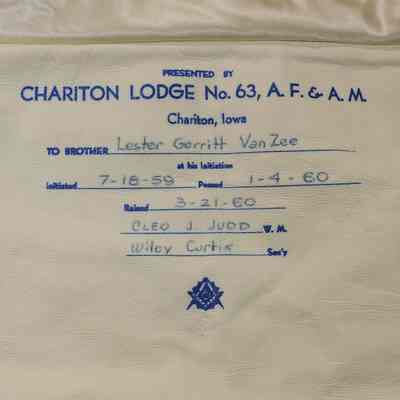 PRESENTED BY
CHARITON LODGE No. 63, A. F. & A. M.
Chariton, Iowa
TO BROTHER Lester Gerritt VanZee
at his Initiation
Initiated 7-18-59 Passed 1-4-60
Raised 3-21-60
CLEO J. JUDD W. M.
Wiley Curtis Sec'y